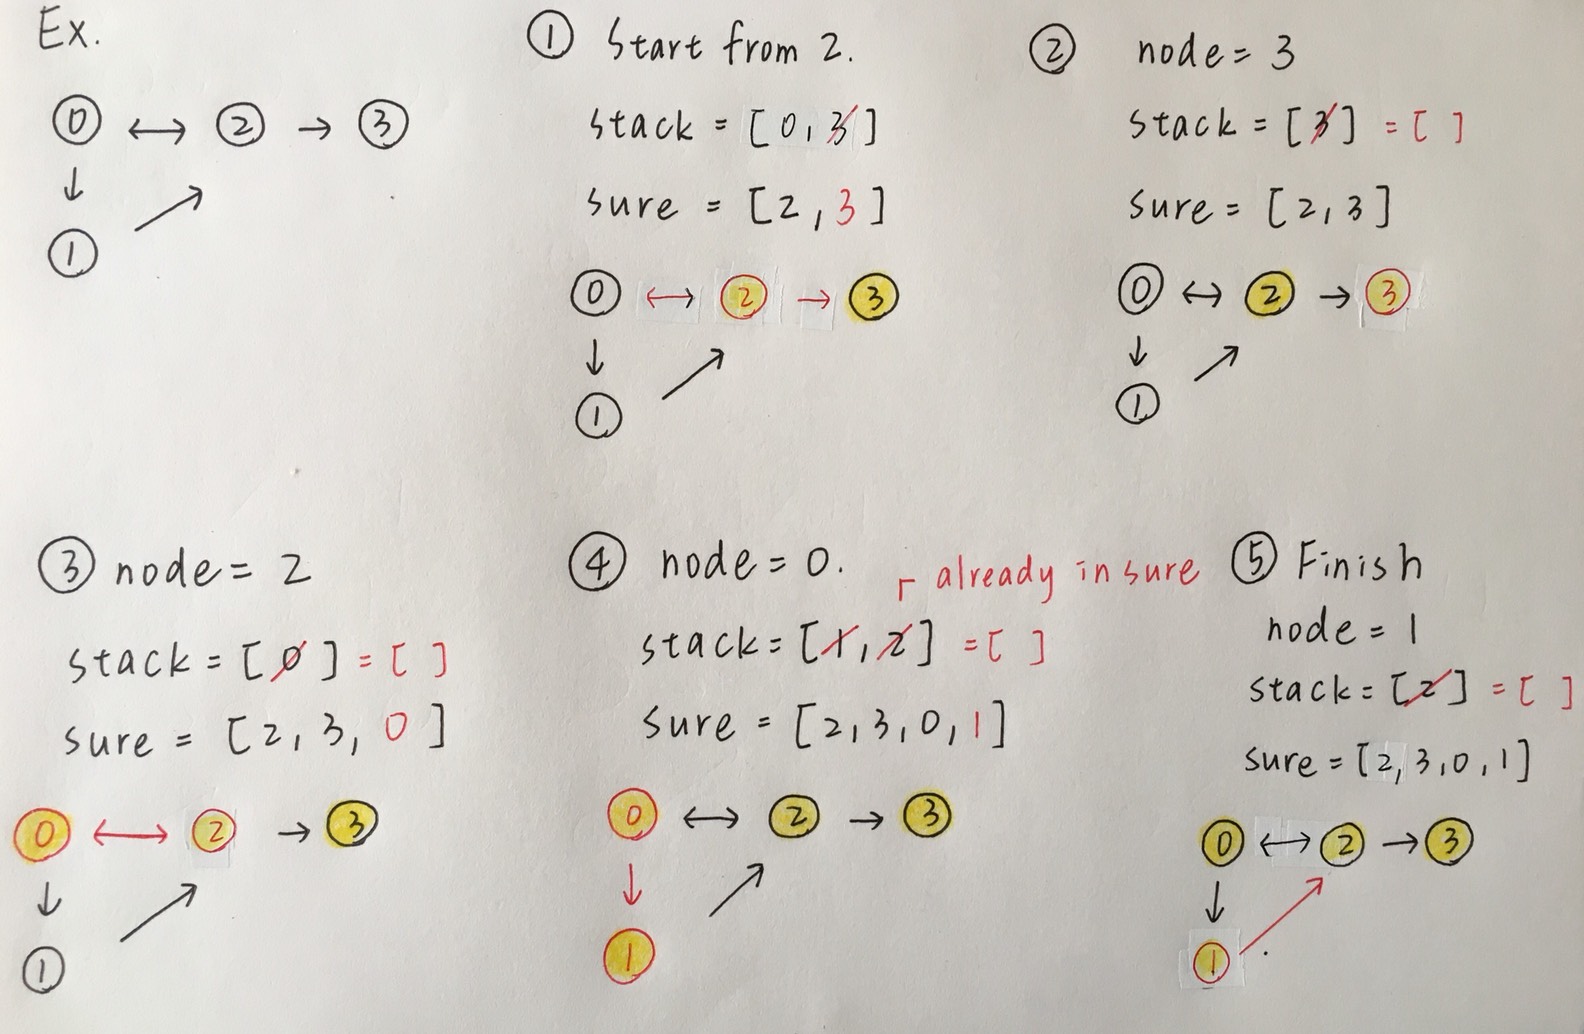 Ex.
0 ↔ 2 → 3
↓ ↗
1
① Start from 2.
stack = [0, 3]
sure = [2, 3]
0 ↔ 2 → 3
↓ ↗
1
② node = 3
stack = [3] = [ ]
sure = [2, 3]
0 ↔ 2 → 3
↓ ↗
1
③ node = 2
stack = [0] = [ ]
sure = [2, 3, 0]
0 ↔ 2 → 3
↓ ↗
1
④ node = 0.
already in sure
stack = [1, 2] = [ ]
sure = [2, 3, 0, 1]
0 ↔ 2 → 3
↓ ↗
1
⑤ Finish
node = 1
stack = [2] = [ ]
sure = [2, 3, 0, 1]
0 ↔ 2 → 3
↓ ↗
1